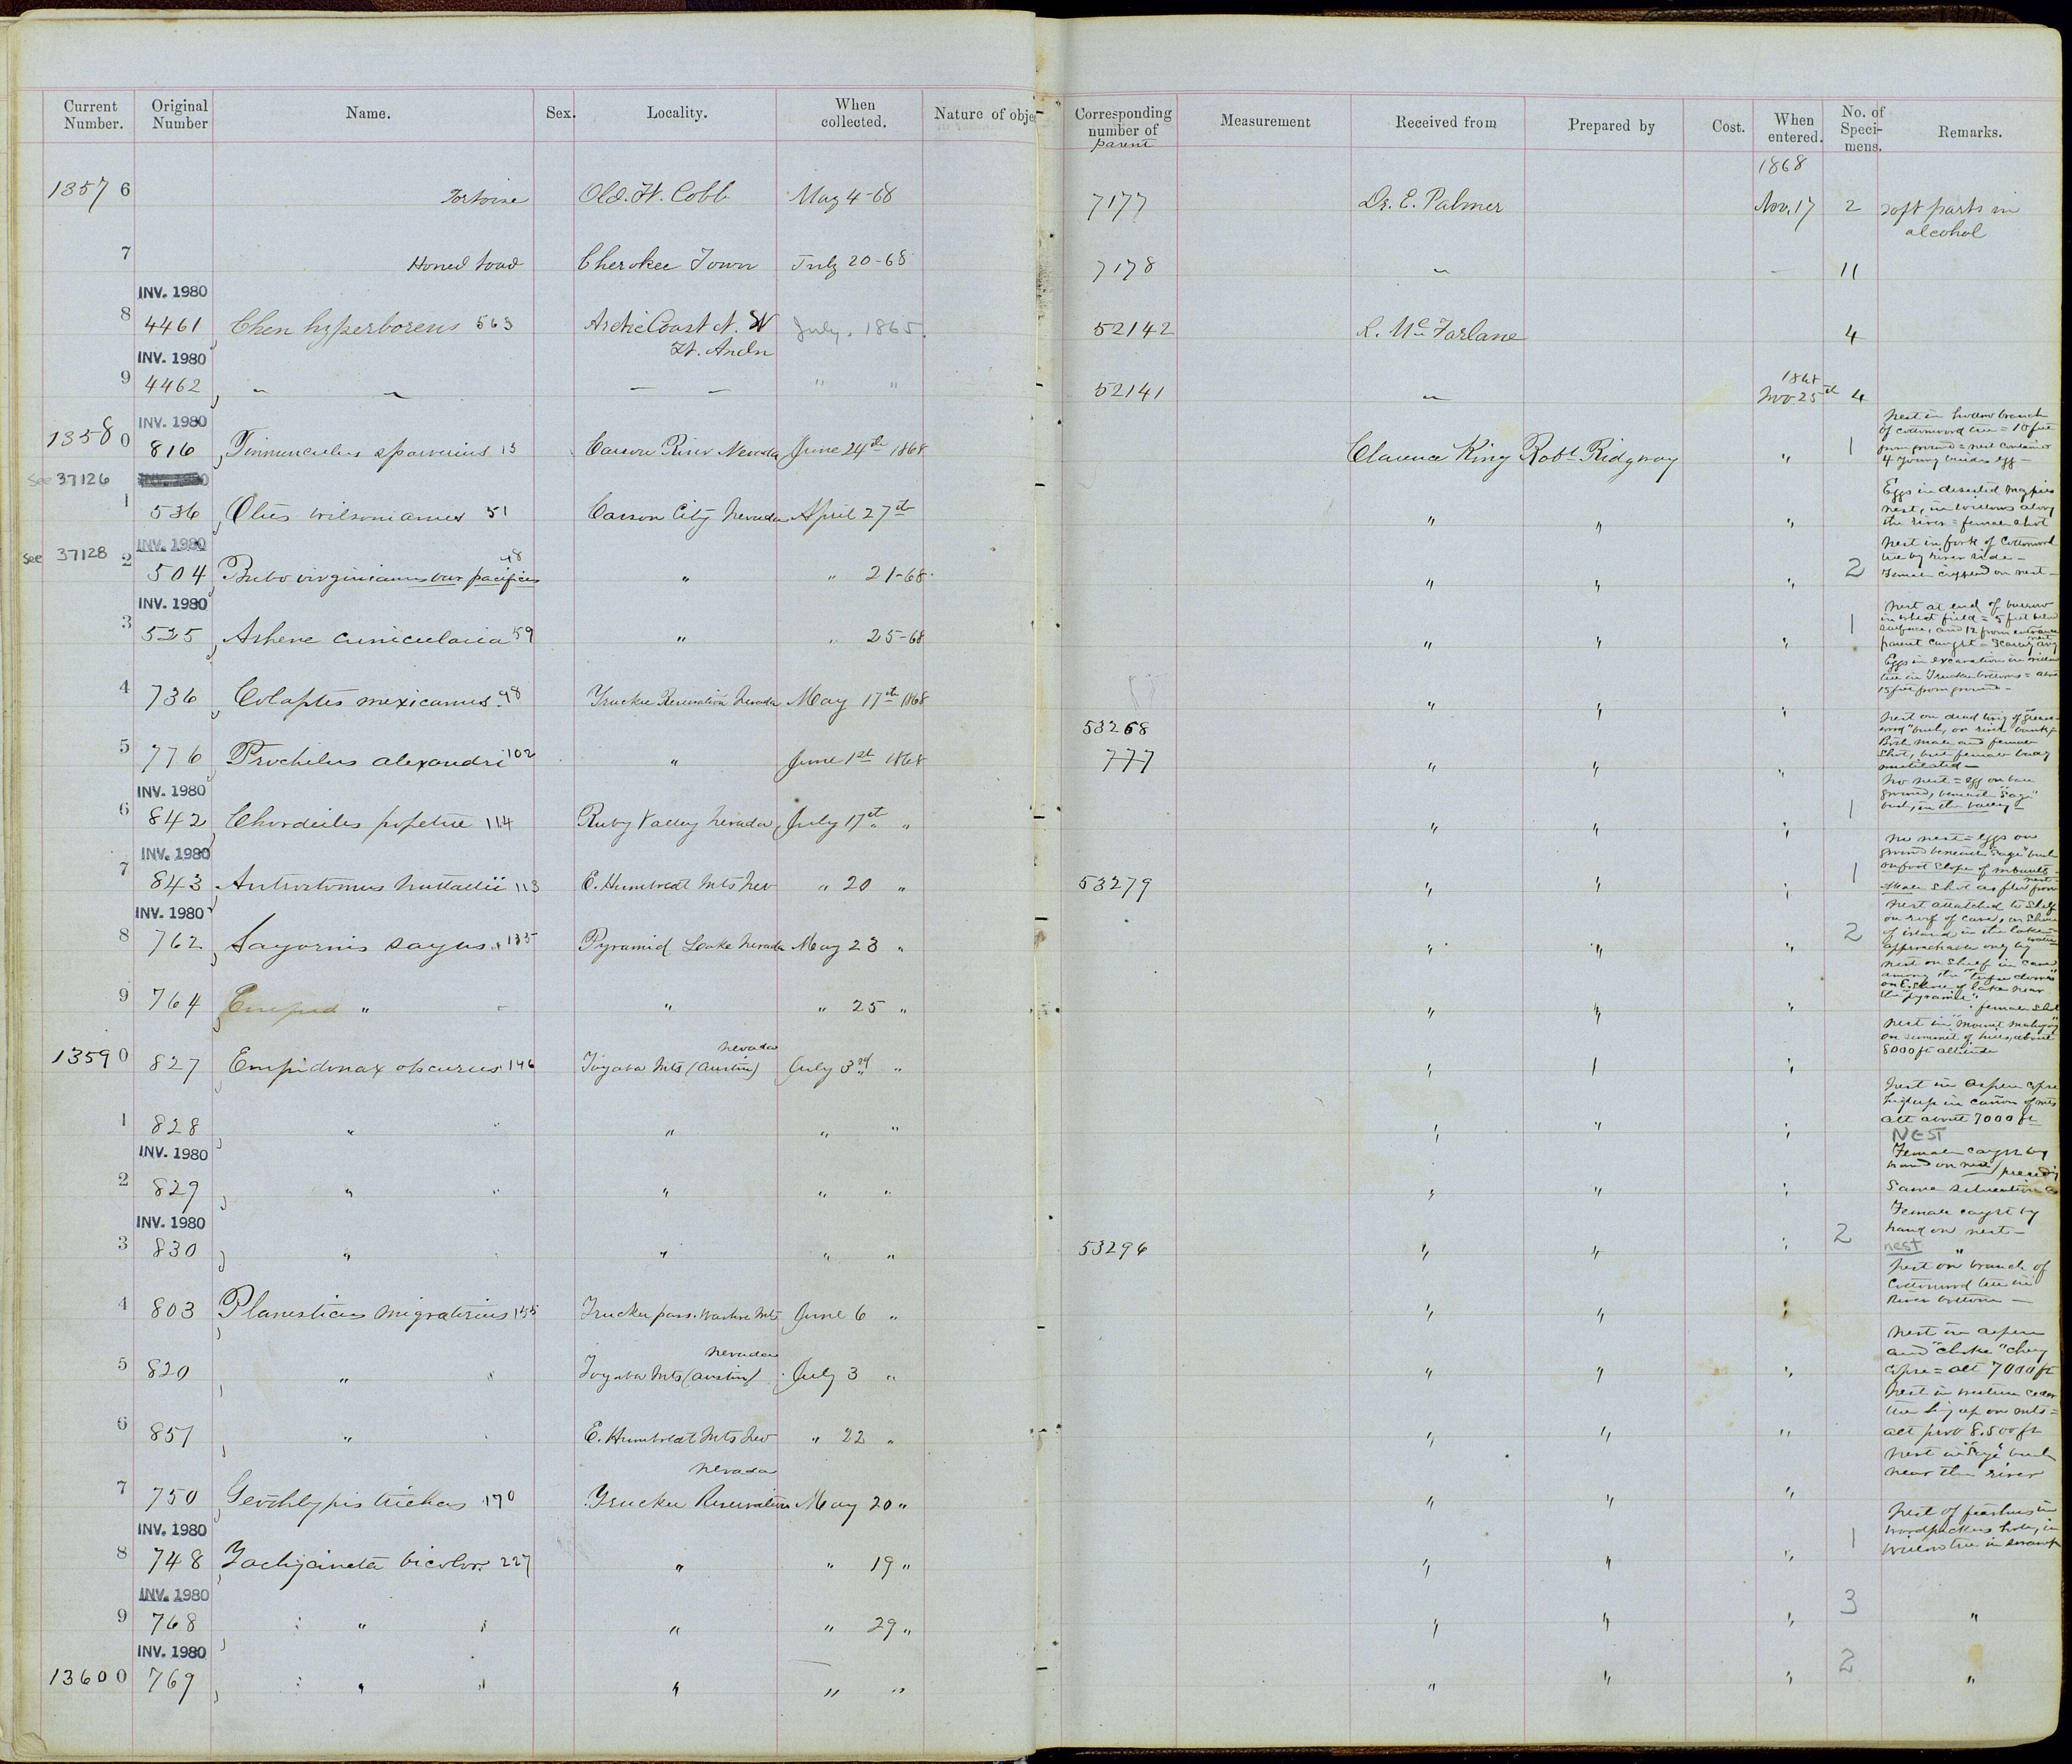 Current Number. Original Number Name. Sex. Locality. When collected. Nature of obje Corresponding number of parent Measurement Received from Prepared by Cost. When entered. No. of Speci-mens. Remarks.
1868
13576 Tortoise Old. Ft. Cobb May 4-68 7177 Dr. E. Palmer Nov. 17 2 soft parts in
alcohol
7 Horned toad Cherokee Town July 20-68 7178 " 11
INV. 1980
8 4461 Chen hyperboreus 563 Arctic Coast N. W July. 1865. 52142 R. McFarlane 4
Ft. Andn
INV. 1980
9 4462 " " " " " " 52141 " 1868 Nov 25th 4
INV. 1980
13580 816 Tinnunculus sparverius 13 Carson River Nevada June 24th 1868 Clarence King Robt Ridgway " 1 Nest in hollow branch
of cottonwood tree = 10 feet
from ground = nest contained
4 young besides egg —
See 37126
1 536 Otus wilsonianus 51 Carson City Nevada April 27th " " " Eggs in deserted magpies
nest, in willows along
the river = female shot
INV. 1980
See 37128 2 504 Bubo virginianus var pacificus 48 " " 21-68. " " " 2 Nest in fork of Cottonwood
tree by river side —
Female captured on nest —
INV. 1980
3 525 Athene cunicularia 59 " " 25-68 " " " 1 Nest at end of burrow
in wheat field = 5 feet below
surface, and 12 from entrance
parent caught
4 736 Colaptes mexicanus. 98 Truckee Reservation Nevada May 17th 1868 " " " Eggs in excavation in willow
tree in Truckee bottoms =
15 feet from ground —
53268
5 776 Trochilus alexandri 102 " June 1st 1868 777 " " " Nest on dead twig of "grease-
wood" bush, on river bank,
Both male and female
shot, but female badly
mutilated —
INV. 1980
6 842 Chordeiles popetue 114 Ruby Valley Nevada July 17th " " " " 1 No nest = egg on bare
ground, beneath "sage"
bush, in the valley —
INV. 1980
7 843 Antrostomus nuttallii 113 E. Humboldt Mts Nev " 20 " 53279 " " " 1 No nest = eggs on
ground beneath "sage" bush
on foot slope of mounts —
Male shot as flew from nest —
INV. 1980
8 762 Sayornis sayus. 135 Pyramid Lake Nevada May 23 " " " " 2 Nest attatched to shelf
on roof of cave, on shore
of island in the lake =
approachable only by water
9 764 Empid " " " 25 " " " " Nest on shelf in cave
among the "tufa domes"
on E. shore of lake near
the "pyramid". female shot
13590 827 Empidonax obscurus 146 Toyaba Mts (Austin) Nevada July 3rd " " " " Nest in "Mount Mahogany"
on summit of hills, about
8000 ft altitude
1 828 " " " " " " " " Nest in aspen copse
high up in cañon of mts
alt about 7000 ft
NEST
INV. 1980
2 829 " " " " " " " " Female caught by
hand on nest
Same situation as
INV. 1980
3 830 " " " " 53296 " " " 2 Female caught by
hand on nest —
nest "
4 803 Planesticus migratorius 155 Truckee pass. Washoe Mts June 6 " " " " Nest on branch of
Cottonwood tree in
River bottom —
5 820 " " Toyaba Mts (Austin) Nevada July 3 " " " " Nest in aspen
and "choke" cherry
copse = alt 7000 ft
6 851 " " E. Humboldt Mts Nev " 22 " " " " Nest in western cedar
tree high up on mts =
alt prob 8.500 ft
7 750 Geothlypis trichas 170 Truckee Reservation Nevada May 20 " " " " Nest in "sage" bush
near the river
INV. 1980
8 748 Tachycineta bicolor. 227 " " 19 " " " " 1 Nest of feathers in
woodpeckers hole, in
willow tree in swamp
INV. 1980
9 768 " " " " 29 " " " " 3 "
INV. 1980
13600 769 " " " " " " " " 2 "